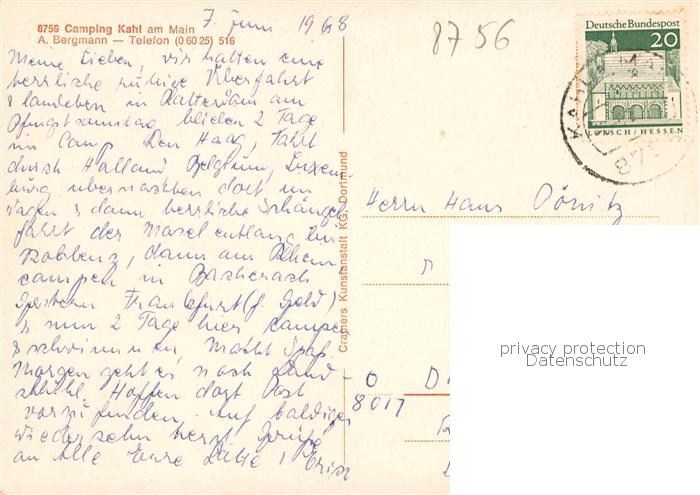 7. Juni 1968
8756 Camping Kahl am Main
A. Bergmann — Telefon (0 60 25) 516
8756
Deutsche Bundespost
20
LORSCH / HESSEN
Meine Lieben, wir hatten eine
herrliche ruhige Überfahrt
& landeten in Rotterdam am
Pfingstsamstag blieben 2 Tage
im Camp Den Haag, Fahrt
durch Holland Belgium, Luxem-
burg übernachten dort im
Wagen & dann herrliche
fahrt der Mosel entlang bis
Koblenz, dann am Rhein
campen in Bacherach
Gestern Frankfurt (f. Geld)
& nur 2 Tage hier campe
& schwimmen, Macht Spaß
Morgen geht es nach Land-
Hoffen dort Post
vorzufinden. Auf baldiges
Wiedersehn herzl Grüße
an Alle Eure
Cramers Kunstanstalt KG, Dortmund
Herrn Hans Dönitz
O
8017
privacy protection
Datenschutz